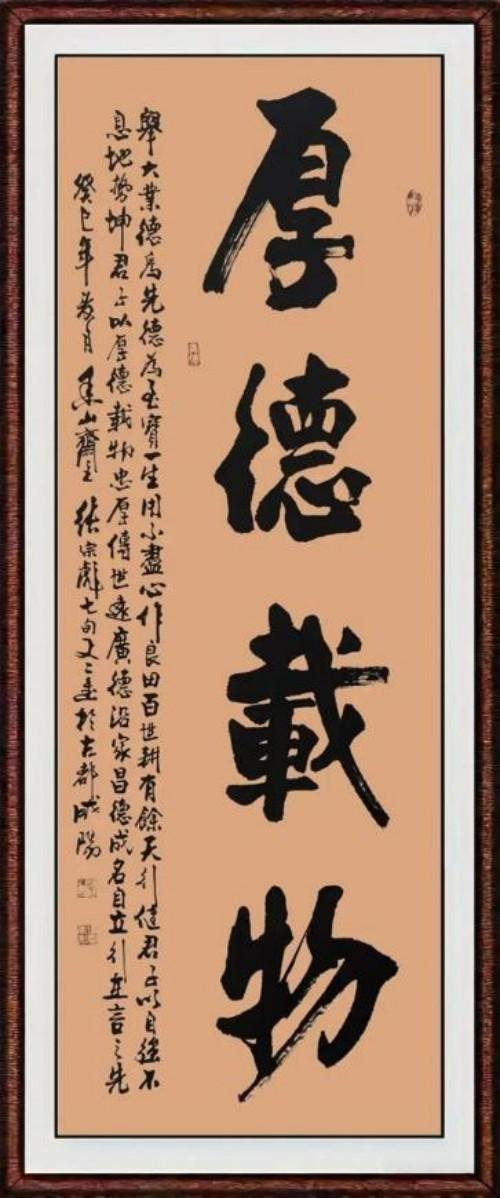 厚德載物
舉大業德為先德為至寶一生用不盡心作良田百世耕有餘天行健君子以自強不
息地勢坤君子以厚德載物忠厚傳世遠廣德沿家昌德成名自立行在言之先
癸巳年月山齋主張宗彪七旬又二書於古都咸陽